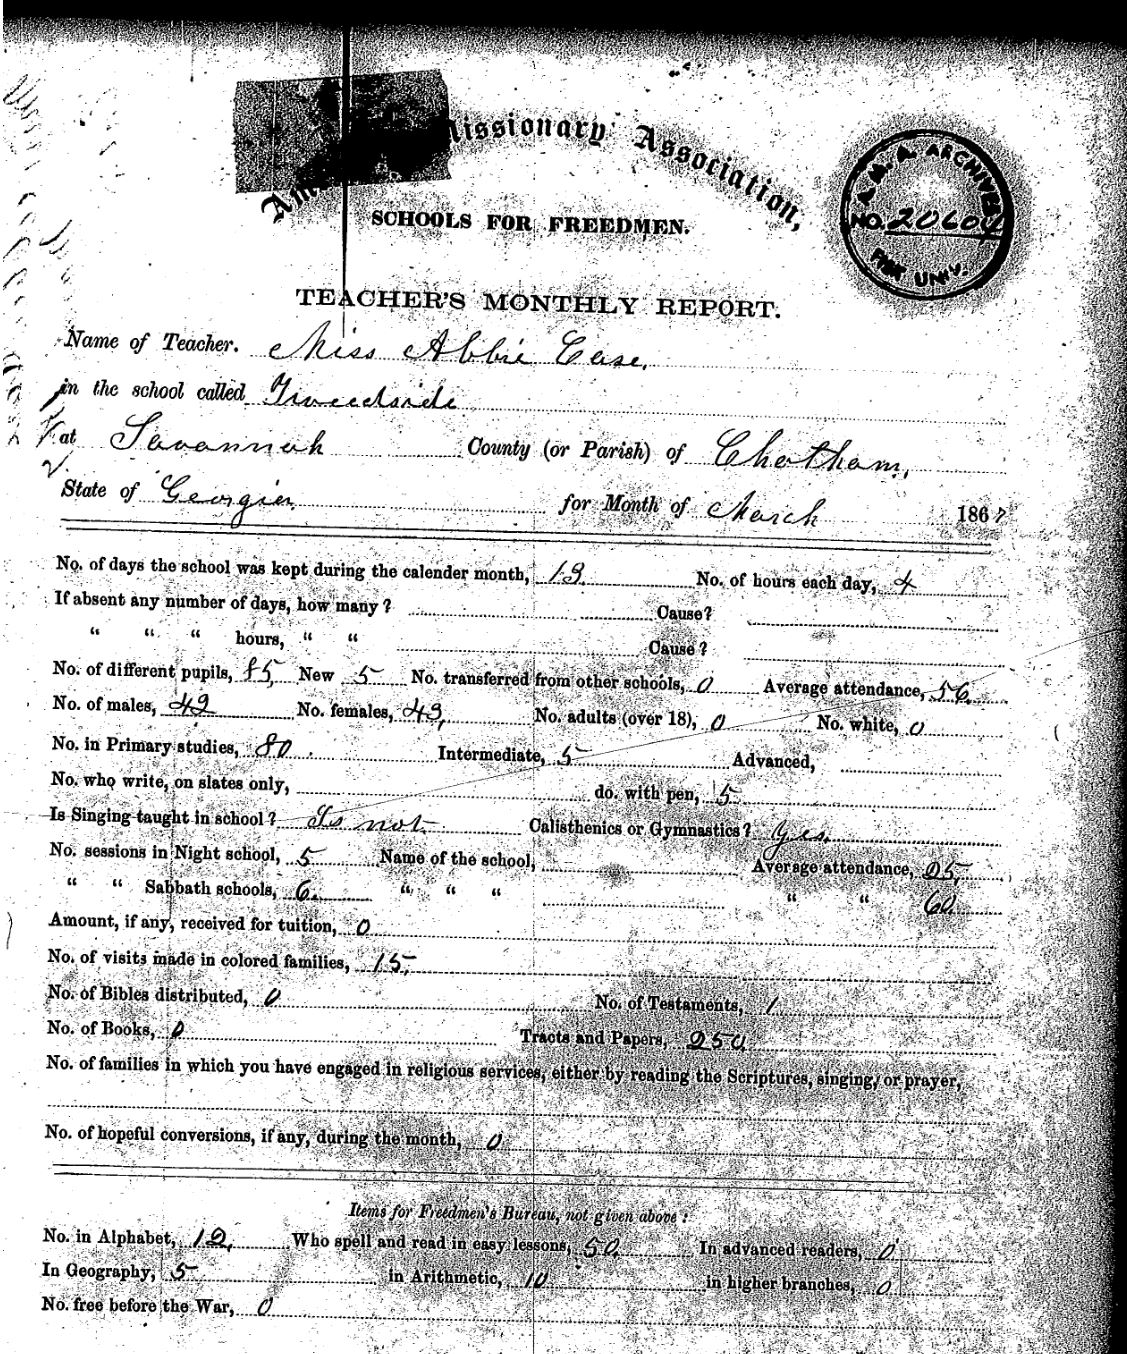 Missionary Association,
SCHOOLS FOR FREEDMEN.
A. M. A. ARCHIVES
NO. 20604
FISK UNIV.
TEACHER'S MONTHLY REPORT.
Name of Teacher. Miss Abbie Case,
in the school called Tweedside
at Savannah County (or Parish) of Chatham,
State of Georgia for Month of March 1867
No. of days the school was kept during the calender month, 19 No. of hours each day, 4
If absent any number of days, how many? Cause?
" " " hours, " " Cause?
No. of different pupils, 85, New 5 No. transferred from other schools, 0 Average attendance, 56,
No. of males, No. females, 43, No. adults (over 18), 0 No. white, 0
No. in Primary studies, 80. Intermediate, 5 Advanced,
No. who write, on slates only, do. with pen, 5
Is Singing taught in school? Is not. Calisthenics or Gymnastics? Yes.
No. sessions in Night school, 5 Name of the school, Average attendance, 25,
" " Sabbath schools, 6. " " " " " 60
Amount, if any, received for tuition, 0
No. of visits made in colored families, 15,
No. of Bibles distributed, 0 No. of Testaments, 1
No. of Books, 0 Tracts and Papers, 250
No. of families in which you have engaged in religious services, either by reading the Scriptures, singing, or prayer,
No. of hopeful conversions, if any, during the month, 0
Items for Freedmen's Bureau, not given above:
No. in Alphabet, 12, Who spell and read in easy lessons, 50 In advanced readers, 0
In Geography, 5 in Arithmetic, 10 in higher branches, 0
No. free before the War, 0